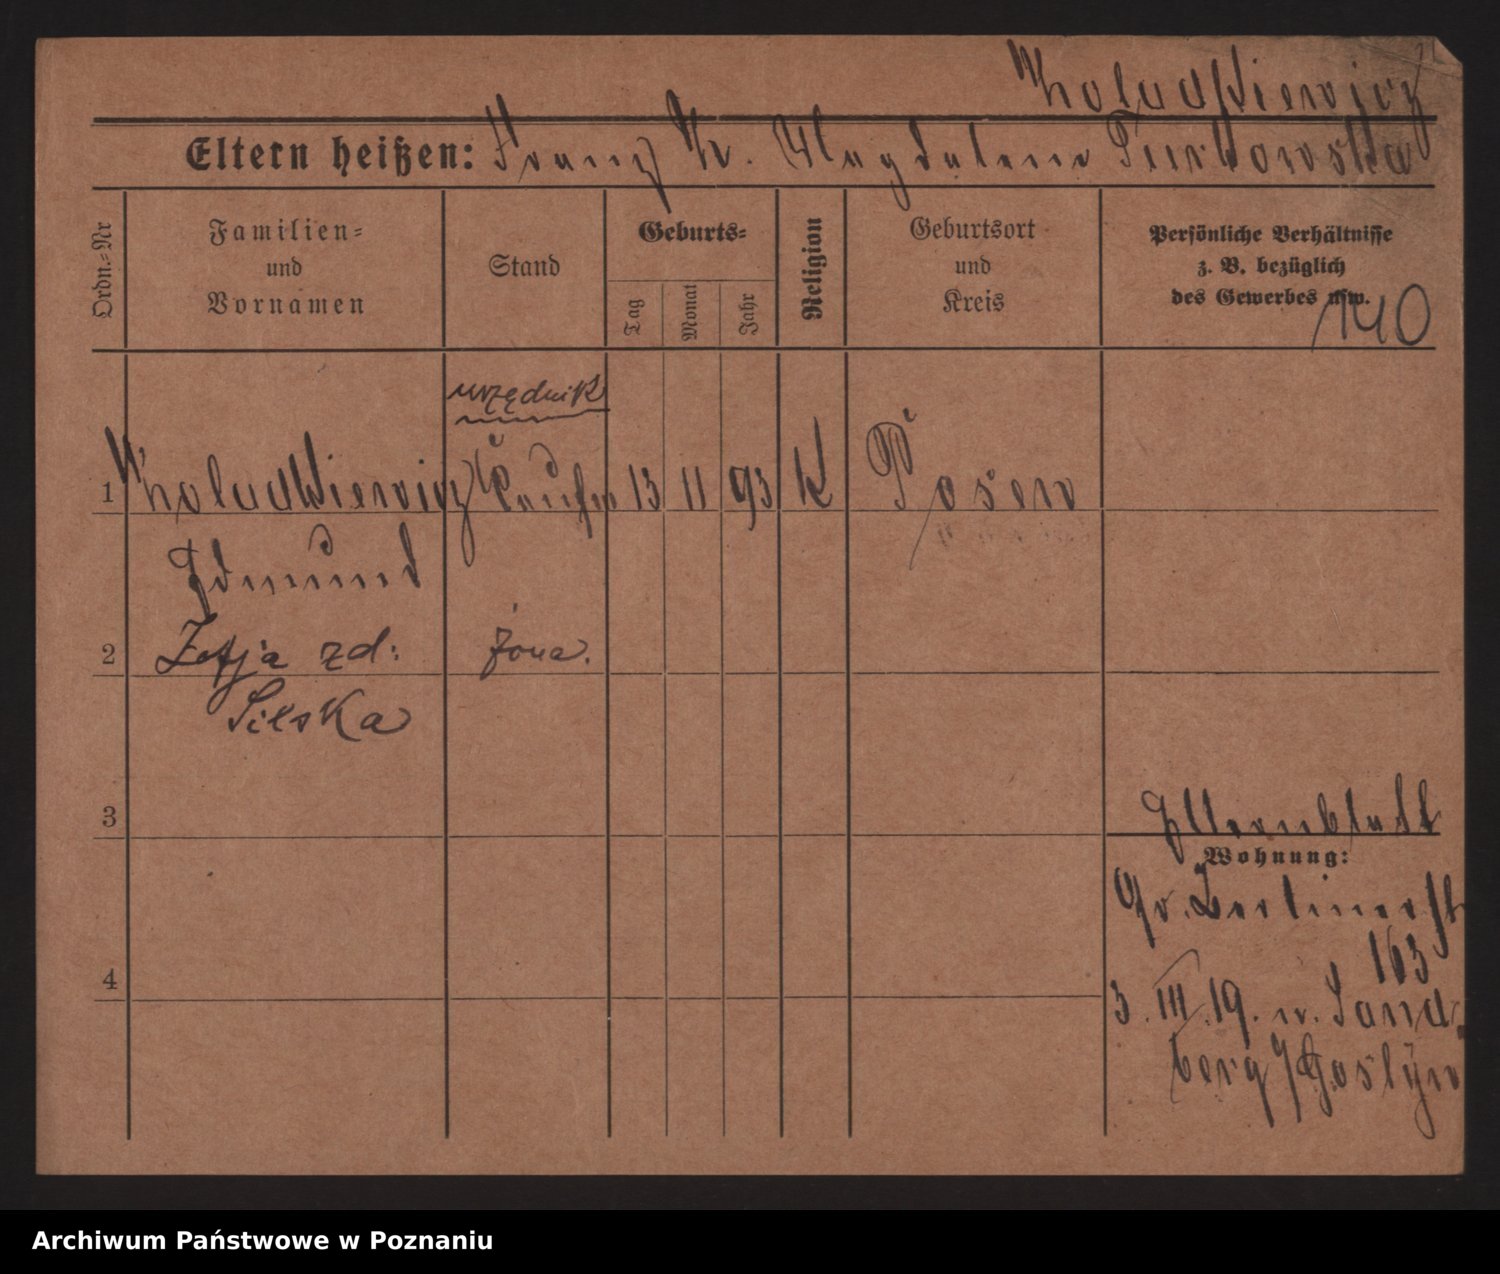 Koludkiewicz
Eltern heißen: Franz K. Magdalena Turkowska
Ordn.=Nr
Familien=
und
Vornamen
Stand
Geburts=
Tag
Monat
Jahr
Religion
Geburtsort
und
Kreis
Persönliche Verhältnisse
z. B. bezüglich
des Gewerbes usw.
140
urzędnik
1 Koludkiewicz Kaufm 13 11 93 K Posen
Edmund
2 Zofja zd: żona.
Silska
3
Elternblatt
Wohnung:
Gr. Berlinerst
163
4
3. III. 19. n. Sand-
berg / Gostyn
Archiwum Państwowe w Poznaniu